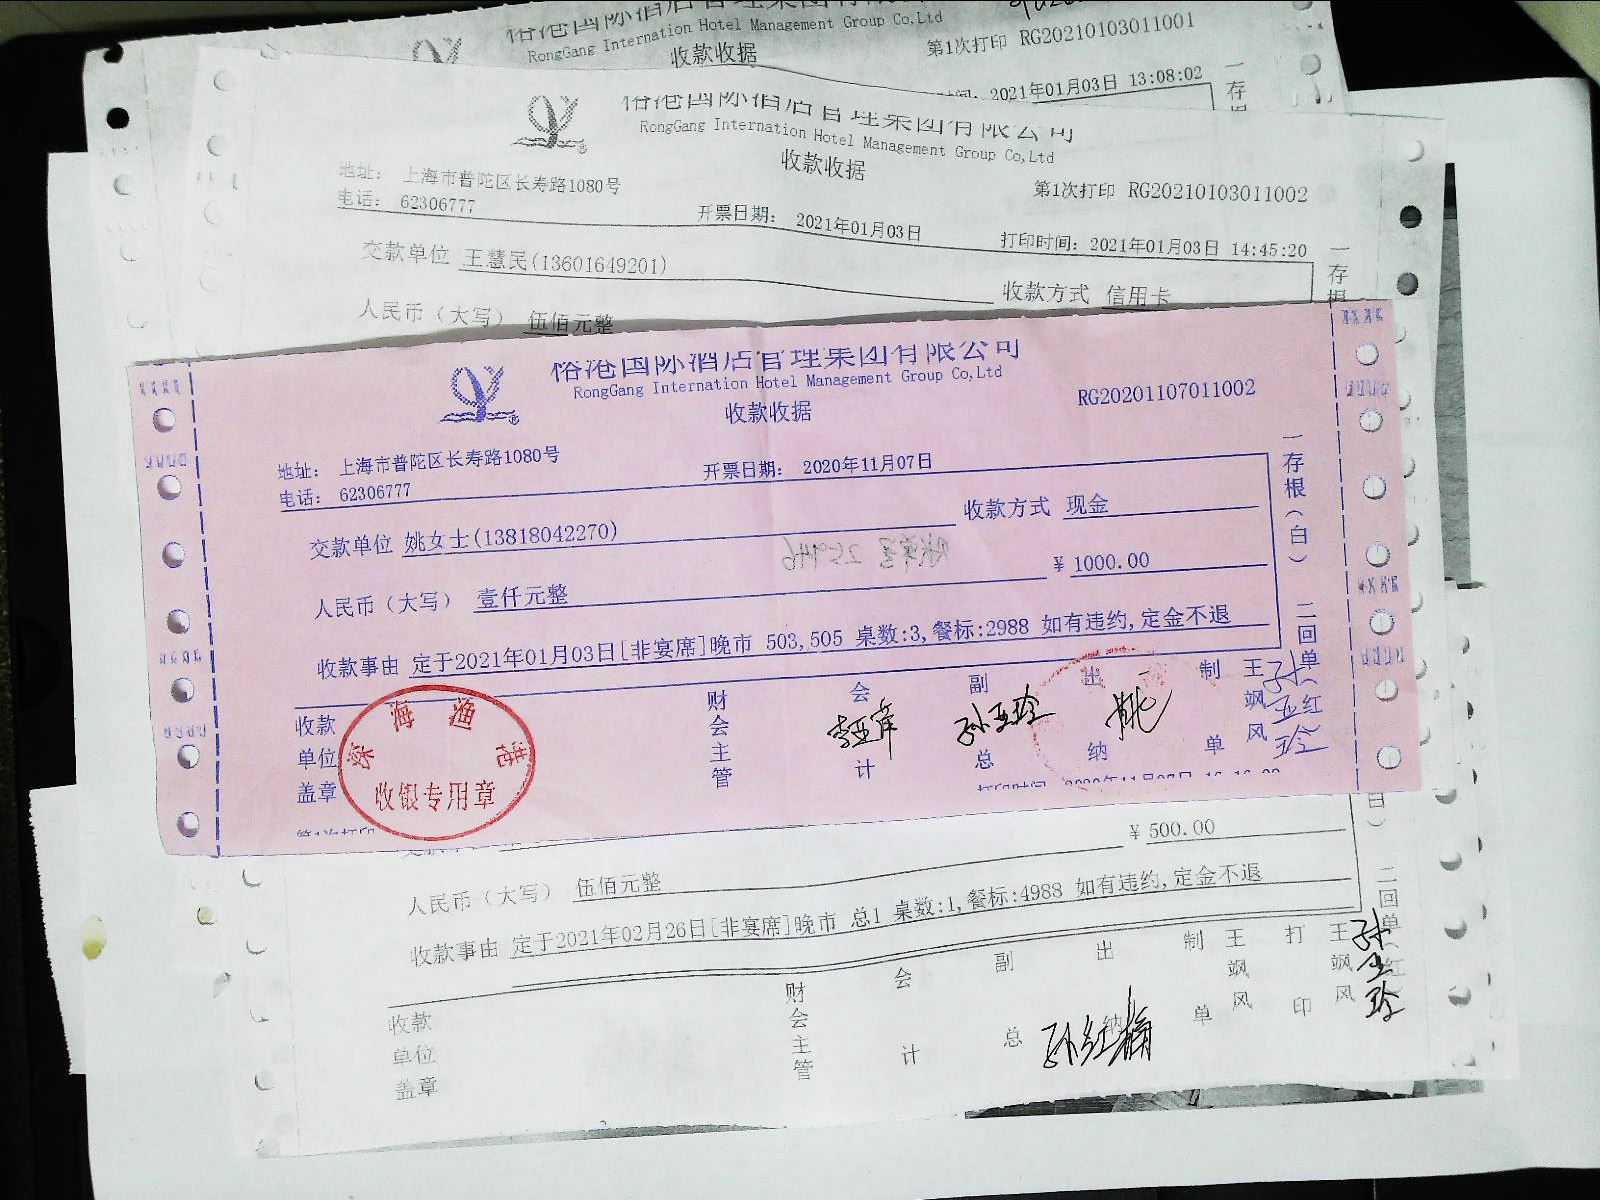 RongGang Internation Hotel Management Group Co,Ltd
收款收据
第1次打印 RG20210103011001
2021年01月03日 13:08:02
一存
RongGang Internation Hotel Management Group Co,Ltd
收款收据
第1次打印 RG20210103011002
地址： 上海市普陀区长寿路1080号
电话： 62306777
开票日期： 2021年01月03日
打印时间：2021年01月03日 14:45:20
交款单位 王慧民(13601649201)
收款方式 信用卡
人民币（大写） 伍佰元整
一存根
裕港国际酒店管理集团有限公司
RongGang Internation Hotel Management Group Co,Ltd
收款收据
RG20201107011002
地址： 上海市普陀区长寿路1080号
电话： 62306777
开票日期： 2020年11月07日
交款单位 姚女士(13818042270)
收款方式 现金
人民币（大写） 壹仟元整
¥ 1000.00
收款事由 定于2021年01月03日[非宴席]晚市 503,505 桌数:3,餐标:2988 如有违约,定金不退
一存根（白） 二回单（红
收款单位盖章
深海渔港
收银专用章
财会主管
会计
副总
孙玉玲
出纳
姚
制单
王飒风
¥ 500.00
人民币（大写） 伍佰元整
收款事由 定于2021年02月26日[非宴席]晚市 总1 桌数:1,餐标:4988 如有违约,定金不退
白） 二回单（红
收款单位盖章
财会主管
会计
副总
出纳
孙红梅
制单
王飒风
打印
王飒风